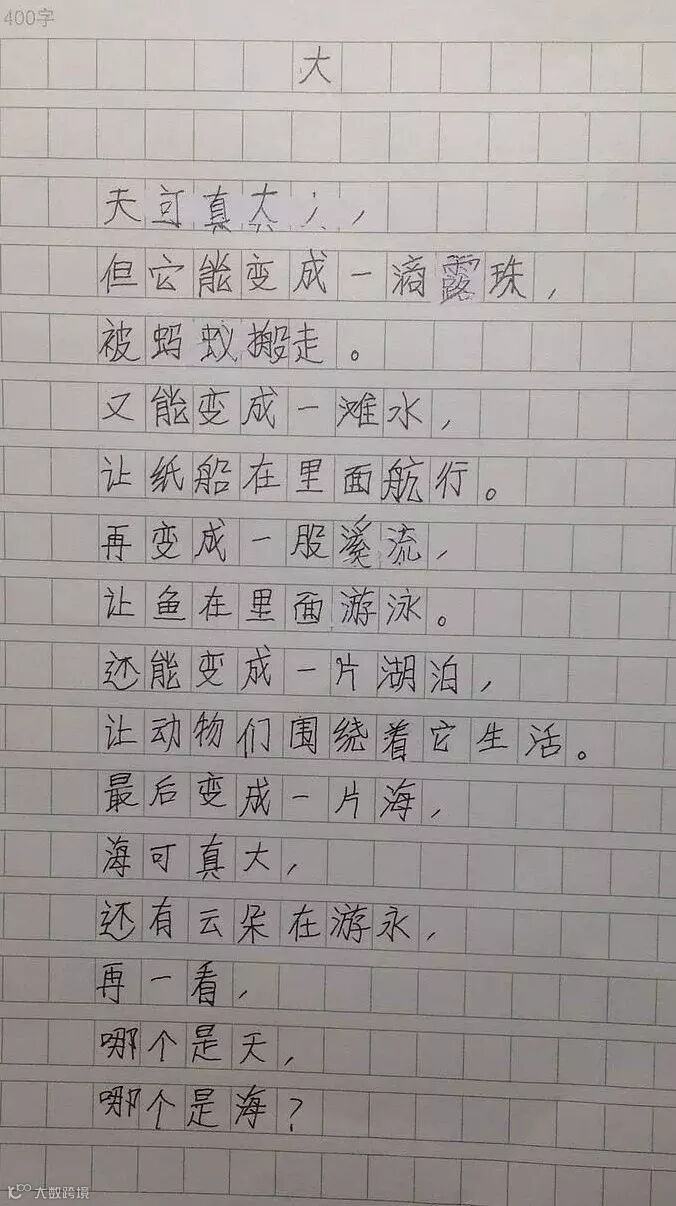 400字
大
天可真大，
但它能变成一滴露珠，
被蚂蚁搬走。
又能变成一滩水，
让纸船在里面航行。
再变成一股溪流，
让鱼在里面游泳。
还能变成一片湖泊，
让动物们围绕着它生活。
最后变成一片海，
海可真大，
还有云朵在游永，
再一看，
哪个是天，
哪个是海？
大数跨境